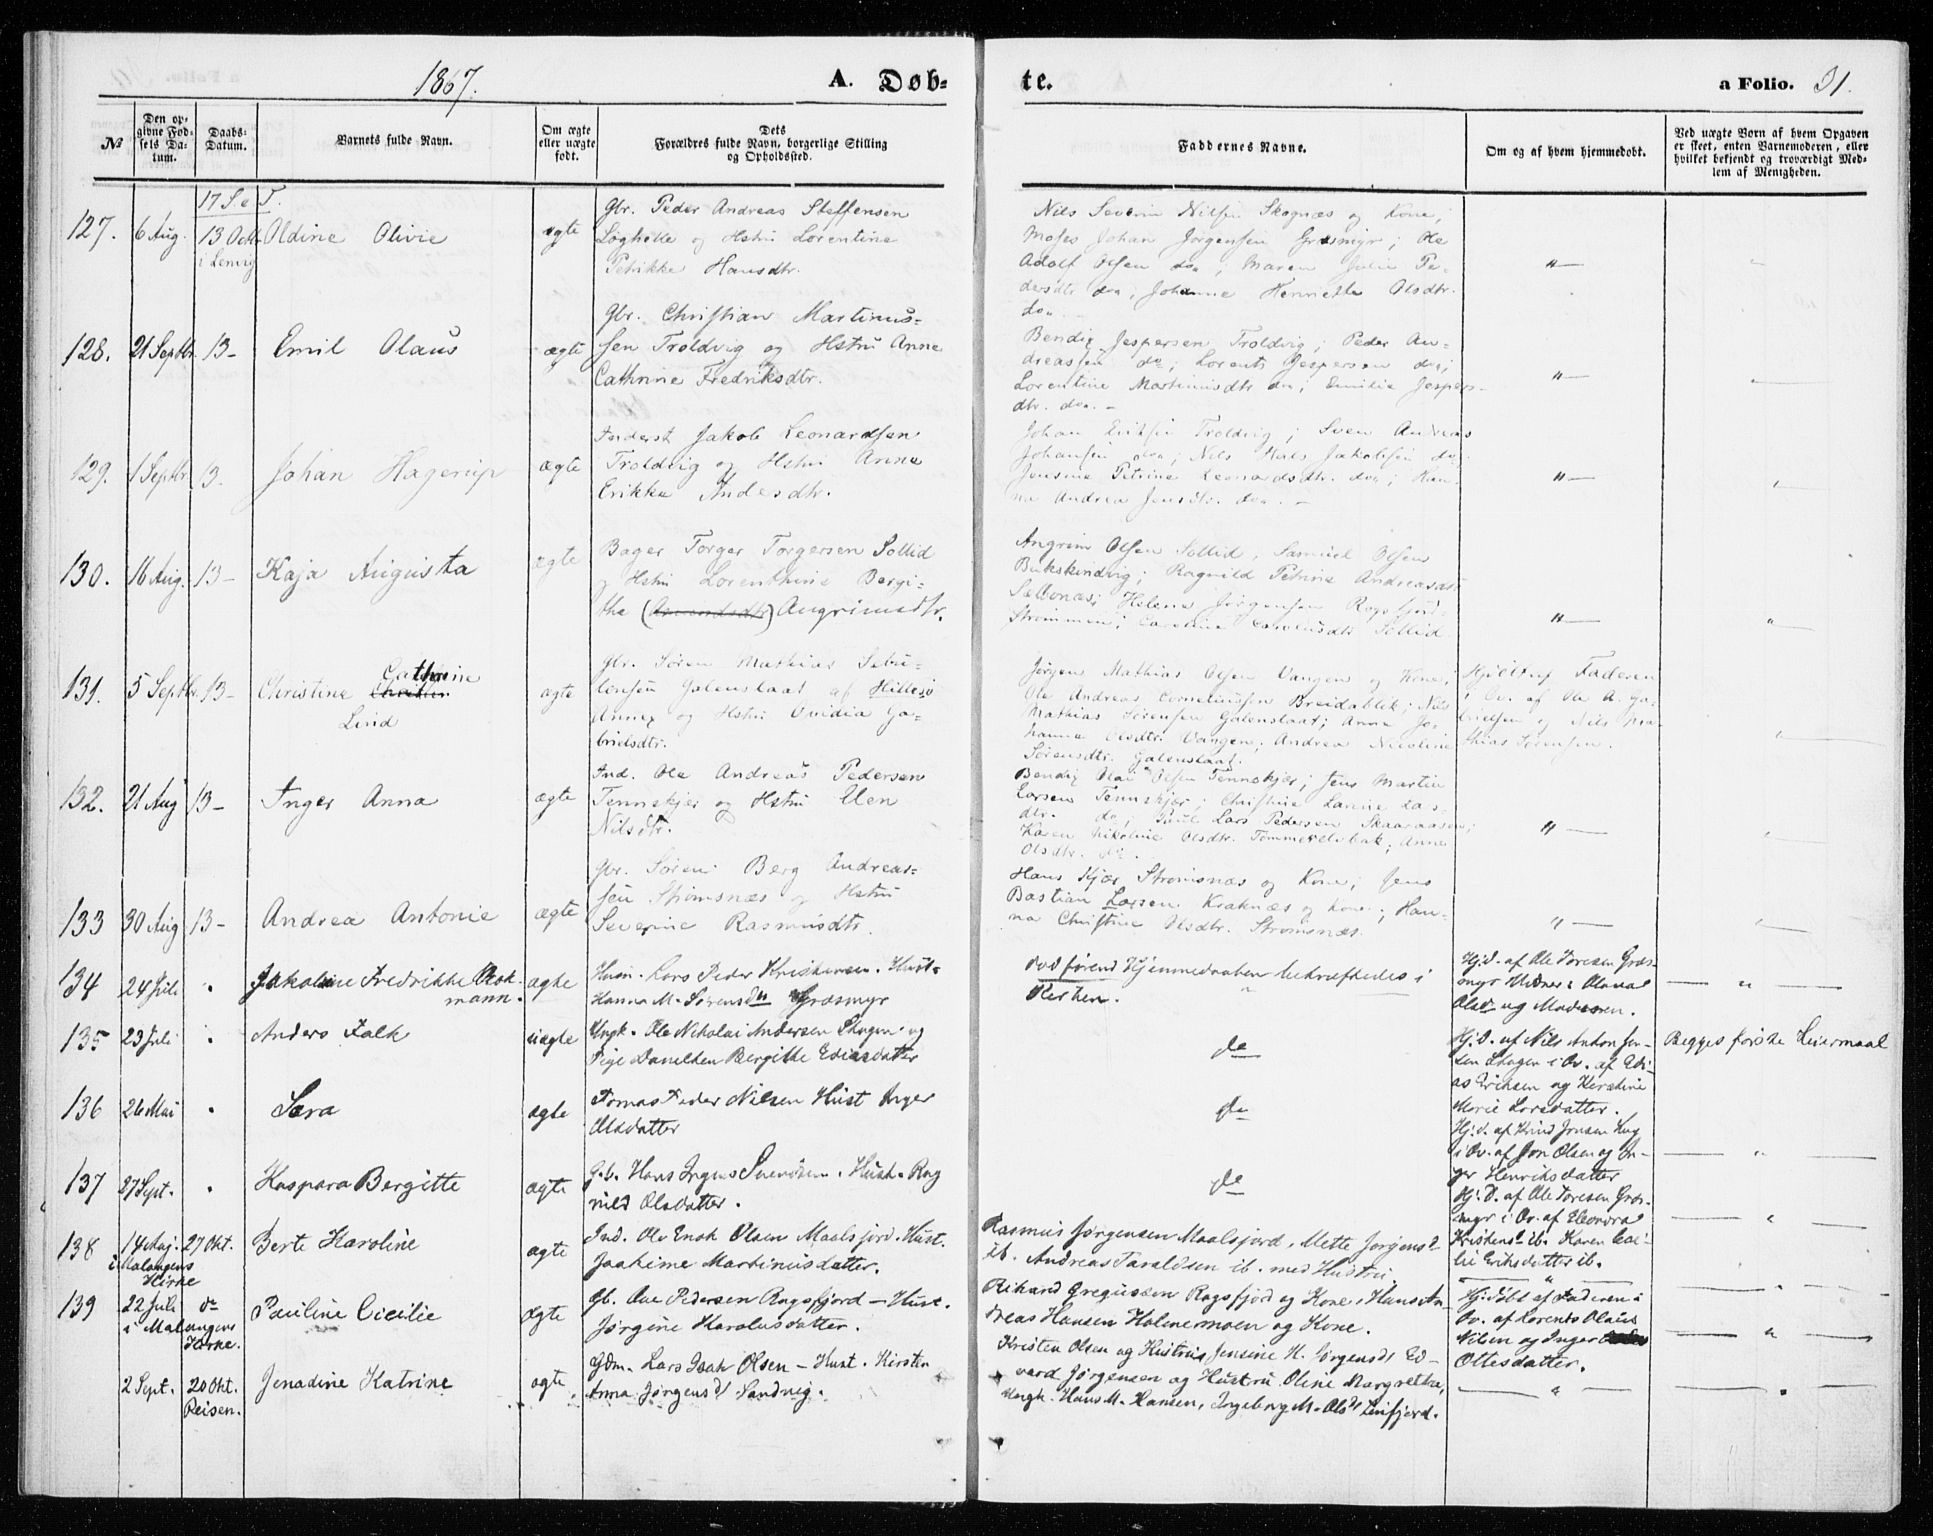 1867.
A. Døb-
te.
a Folio. 31.
No
Den op-
givne Fød-
sels Da-
tum.
Daabs-
Datum.
Barnets fulde Navn.
Om ægte
eller uægte
født.
Dets
Forældres fulde Navn, borgerlige Stilling
og Opholdssted.
Faddernes Navne.
Om og af hvem hjemmedøbt.
Ved uægte Børn af hvem Opgaven
er skeet, enten Barnemoderen, eller
hvilket bekjendt og troværdigt Med-
lem af Menigheden.
17 S. e T.
127. 6 Aug. 13 Octbr i Lenvig
Oldine Olivie
ægte
Gbr. Peder Andreas Steffensen
Løghette og Hstru Lorentine
Petrikke Hansdtr.
Nils Severin Nilsen Skognæs og Kone;
Moses Johan Jørgensen Græsmyr; Ole
Adolf Olsen do; Maren Julie Pe-
dersdtr do; Johanne Henriette Olsdtr.
do.
128. 21 Septbr. 13-
Emil Olaus
ægte
Gbr. Christian Martinus-
sen Troldvig og Hstru Anne
Cathrine Fredriksdtr.
Bendig Jespersen Troldvig; Peder An-
dreassen do; Lorents Jespersen do;
Lorentine Martinusdtr do; Emilie Jespers-
dtr. do. -
129. 1 Septbr. 13.
Johan Hagerup
ægte
Inderst Jakob Leonardsen
Troldvig og Hstru Anna
Erikka Andersdtr.
Johan Eriksen Troldvig; Sven Andreas
Johansen do; Nils Hals Jakobsen do
Jensine Petrine Leonardsdtr. do; Han-
na Andrea Jensdtr. do. -
130. 16 Aug. 13-
Kaja Augusta
ægte
Bager Torger Torgersen Sollid
og Hstru Lorenthine Bergi-
tha (Amundsdtr) Angrimsdtr.
Angrim Olsen Sollid, Samuel Olsen
Bukskindvig; Ragnild Petrine Andreasdtr
Selbonæs; Helena Jørgensen Rossfjord-
Strømmen; Caroline Caroliusdtr Sollid
131. 5 Septbr. 13-
Cathrine
Christine Christen
Lind
ægte
Gbr. Søren Mathias Sebu-
lonsen Galenslaat af Hillesø
Annex og Hstru Ovidia Ga-
brielsdtr.
Jørgen Mathias Olsen Vangen og Kone;
Ole Andreas Corneliussen Breidablik; Nils
Mathias Sørensen Galenslaat; Anne Jo-
hanna Olsdtr. Vangen; Andrea Nicoline
Sørensdtr. Galenslaat.
Hjdøbt af Faderen
i Ov. af Ole A. Ga-
brielsen og Nils Ma-
thias Sørensen.
132. 21 Aug 13-
Inger Anna
ægte
Ind. Ole Andreas Pedersen
Tennskjær og Hstru Elen
Nilsdtr.
Bendig Olai Olsen Tennskjær; Jens Martin
Larsen Tennskjær; Christine Lanine Lars-
dtr. do; Paul Lars Pedersen Skaaraasen;
Karen Nikoline Olsdtr. Tømmerelvbak; Anne
Olsdtr. do.
133 30 Aug 13-
Andrea Antonie
ægte
Gbr. Søren Berg Andreas-
sen Strømsnæs og Hstru
Severine Rasmusdtr.
Hans Kjær Strømsnæs og Kone; Jens
Bastian Larsen Kraknæs og Kone; Han-
na Christine Olsdtr. Strømsnæs.
134 24 Juli "
Jakobine Fredrikke Bok-
mann.
ægte
Husm. Lars Peder Kristiansen. Hust.
Hanna M. Sørensdtr Græsmyr
Død førend Hjemmedaaben bekræftedes i
Kirken.
Hj.d. af Ole Toresen Græs-
myr Vidner: Olava
Olsd. og Moderen.
135 23 Juli "
Anders Falk
uægte
Ungk. Ole Nikolai Andersen Skogen og
Pige Danelken Bergitte Eliasdatter
do
Hj.D. af Nils Anton Jen-
sen Skogen i Ov. af Eli-
as Eriksen og Kirstine
Marie Larsdatter.
Begges første Leiermaal
136 26 Mai "
Sara
ægte
Tomas Peder Nilsen Hust Inger
Olsdatter
do
Hj.d. af Knud Jonsen
i Ov. af Jon Olsen og In-
ger Henriksdatter
137 27 Sept. "
Kaspara Bergitte
ægte
Gb. Hans Ingus Svendsen. Hust. Rag
nild Olsdatter.
do
Hj.D. af Ole Toresen Græs-
myr i Ov. af Eleonora
Kristensd ib. Karen Ceci-
lie Eriksdatter ib.
138 14 Aug. 27 Okt.
i Malangens
Kirke
Berte Karoline
ægte
Ind. Ole Enok Olsen Maalsjord. Hust.
Joakime Martinusdatter.
Rasmus Jørgensen Maalsjord, Mette Jørgensd
ib. Andreas Taraldsen ib. med Hustru
139 22 Juli do
i Malangens
Kirke.
Pauline Cicilie
ægte
Gb. Ove Pedersen Rossfjord - Hust.
Jørgine Karolusdatter.
Rikard Gregussen Rossfjord og Kone. Hans An-
dreas Hansen Holmemoen og Kone.
Hj.døbt af Faderen i
Ov. af Lorents Olaus
Nilsen og Inger
Ottesdatter.
2 Sept. 20 Okt.
Reisen.
Jenadine Katrine
ægte
Gdm. Lars Isak Olsen - Hust. Kirsten
Anna Jørgensd Sandvig.
Kristen Olsen og Hustru Jensine H. Jørgensd. Ed-
vard Jørgensen og Hustru Oline Margretha,
Ungk. Hans M. Hansen, Ingeborg M. Olsd